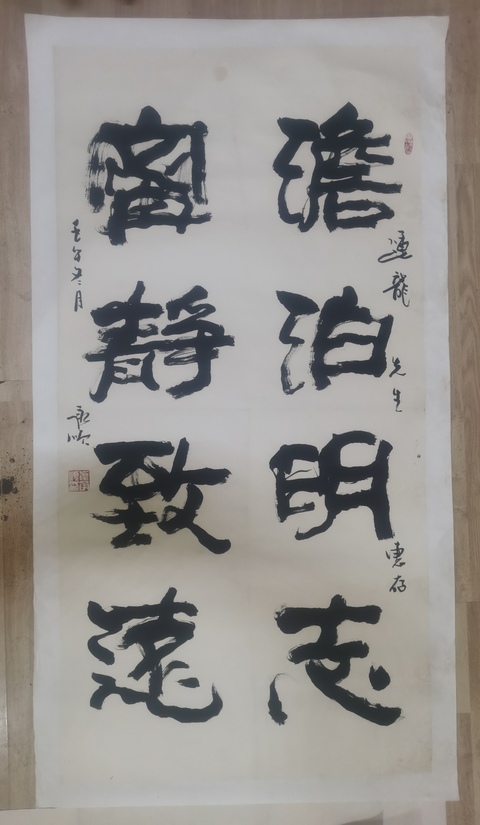 龍 先生 惠存
澹泊明志
寧靜致遠
壬午冬月 永順